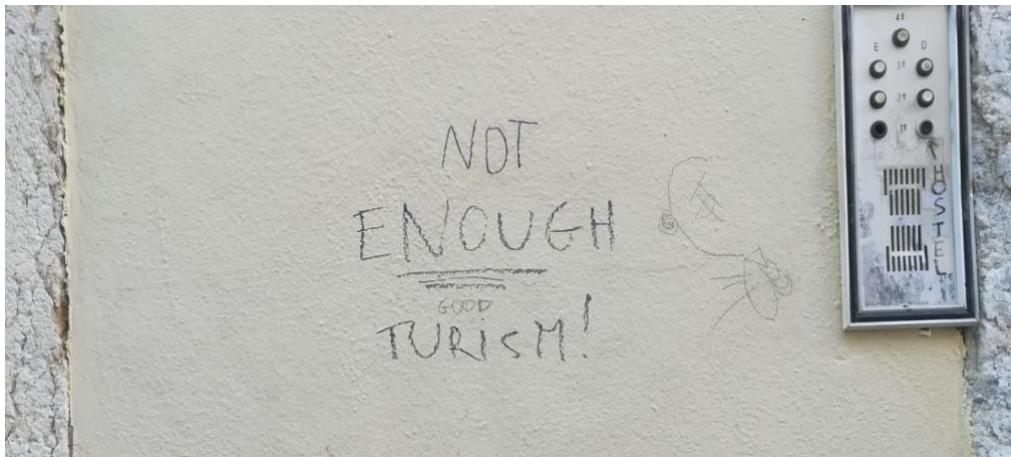 NOT
ENOUGH
GOOD
TURISM!
4º
E D
3º
2º
1º
HOSTEL